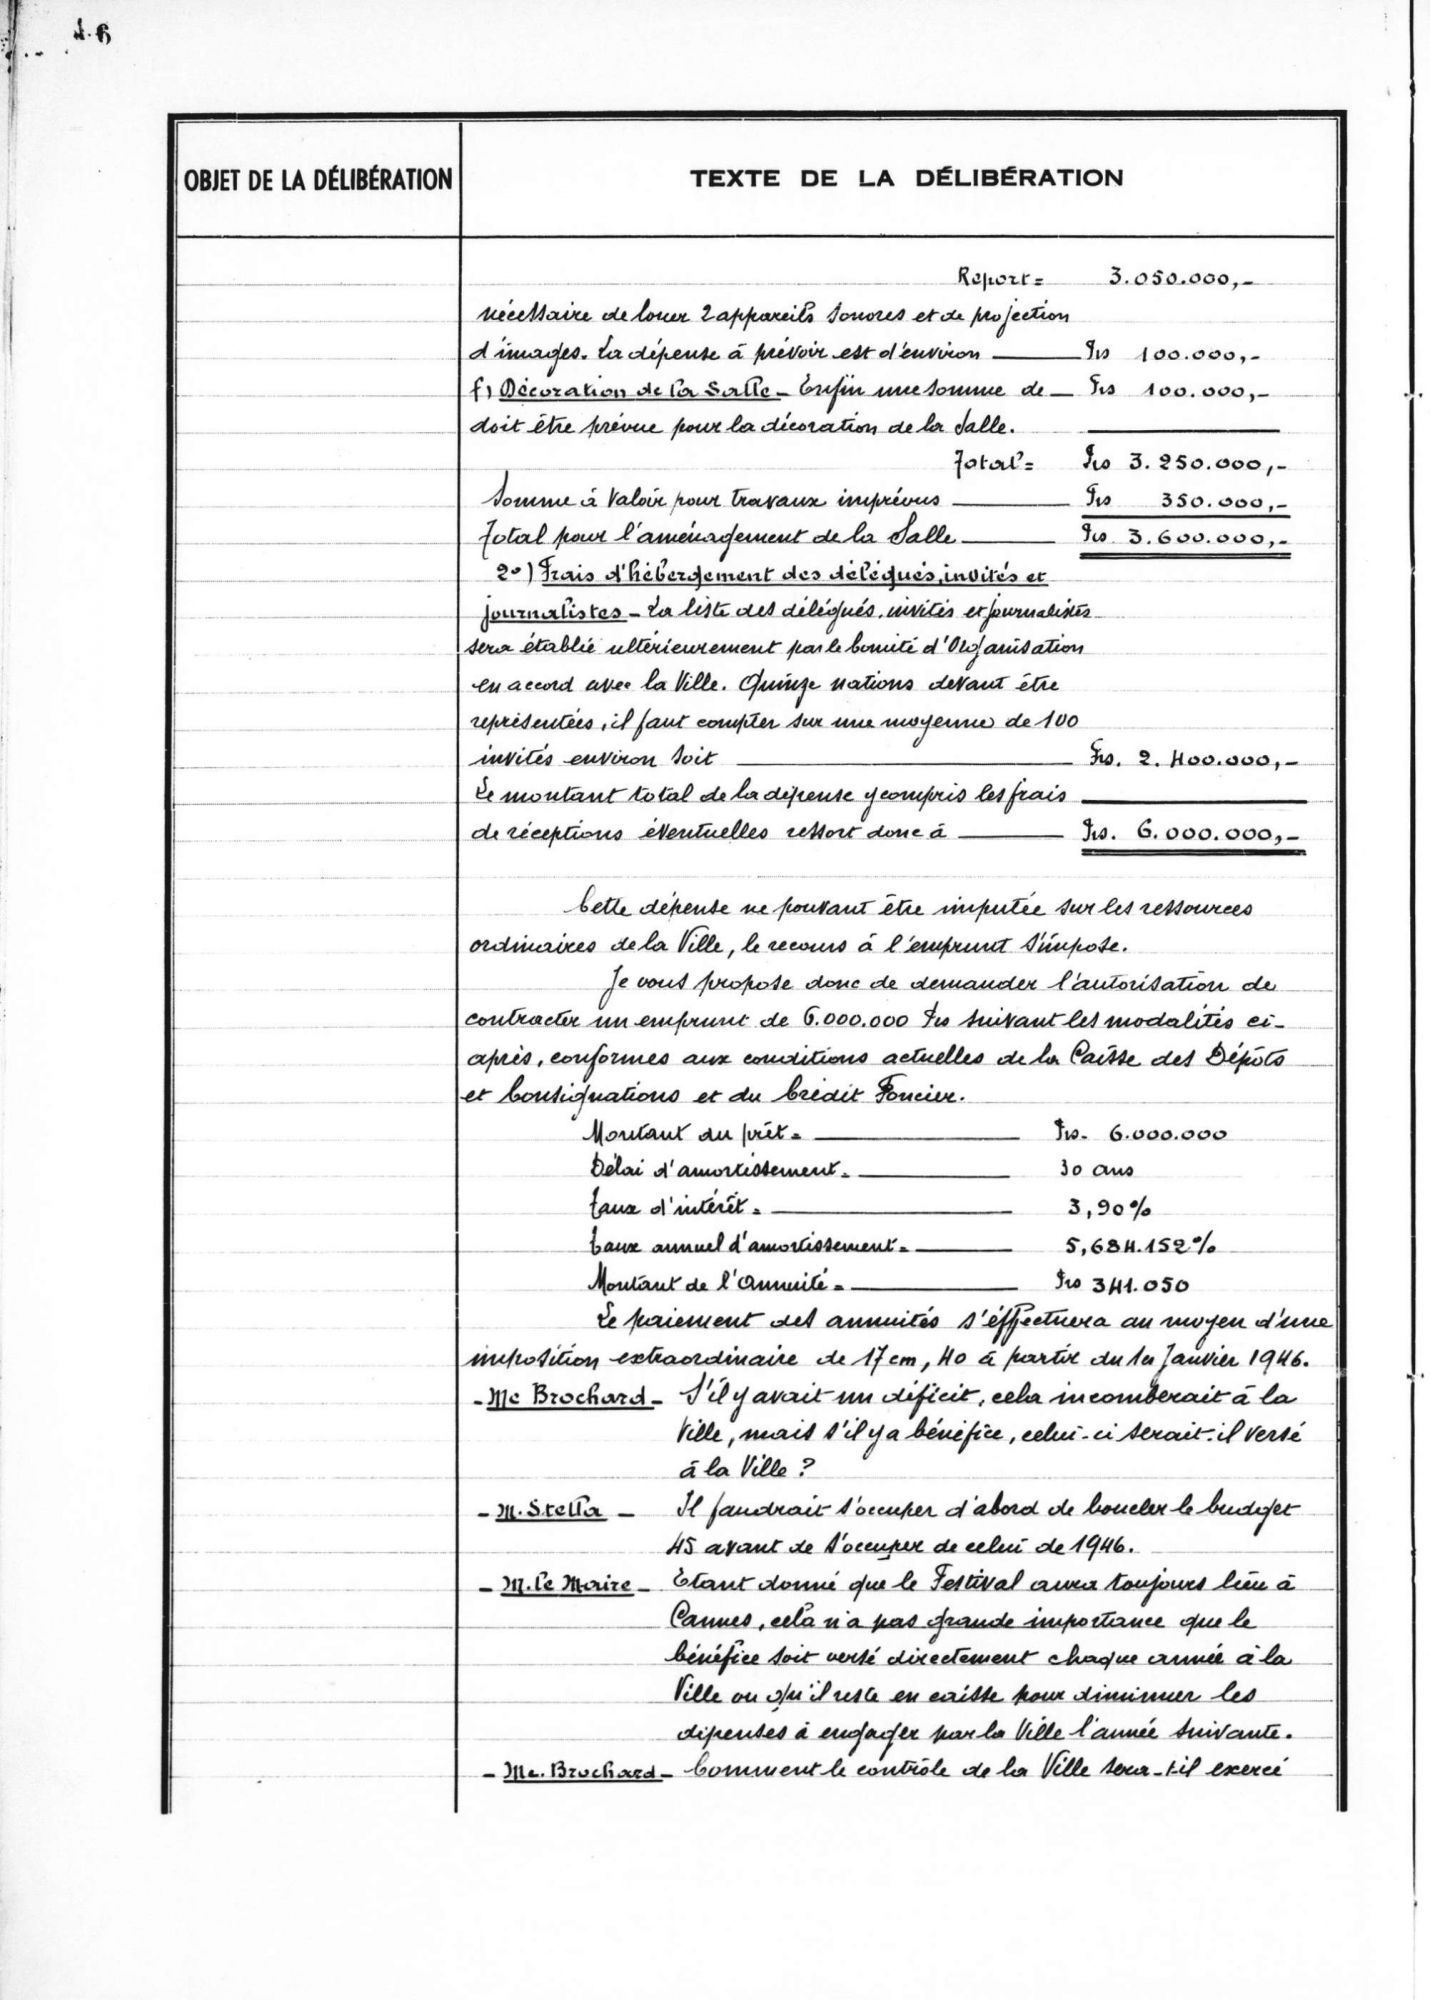 46
OBJET DE LA DÉLIBÉRATION
TEXTE DE LA DÉLIBÉRATION
Report = 3.050.000,-
nécessaire de louer 2 appareils sonores et de projection
d'images. La dépense à prévoir est d'environ — Frs 100.000,-
f) Décoration de la Salle - Enfin une somme de — Frs 100.000,-
doit être prévue pour la décoration de la Salle.
Total = Frs 3.250.000,-
Somme à valoir pour travaux imprévus — Frs 350.000,-
Total pour l'aménagement de la Salle — Frs 3.600.000,-
2°) Frais d'hébergement des délégués, invités et
journalistes - La liste des délégués, invités et journalistes
sera établie ultérieurement par le Comité d'Organisation
en accord avec la Ville. Quinze nations devant être
représentées, il faut compter sur une moyenne de 100
invités environ soit — Frs. 2.400.000,-
Le montant total de la dépense y compris les frais
de réceptions éventuelles ressort donc à — Frs. 6.000.000,-
Cette dépense ne pouvant être imputée sur les ressources
ordinaires de la Ville, le recours à l'emprunt s'impose.
Je vous propose donc de demander l'autorisation de
contracter un emprunt de 6.000.000 Frs suivant les modalités ci-
après, conformes aux conditions actuelles de la Caisse des Dépôts
et Consignations et du Crédit Foncier.
Montant du prêt = — Frs. 6.000.000
Délai d'amortissement = — 30 ans
Taux d'intérêt = — 3,90 %
Taux annuel d'amortissement = — 5,684.152 %
Montant de l'Annuité = — Frs 341.050
Le paiement des annuités s'éffectuera au moyen d'une
imposition extraordinaire de 17 cm, 40 à partir du 1er Janvier 1946.
- Me Brochard - S'il y avait un déficit, cela incomberait à la
Ville, mais s'il y a bénéfice, celui-ci serait-il versé
à la Ville ?
- M. Stella - Il faudrait s'occuper d'abord de boucler le budget
45 avant de s'occuper de celui de 1946.
- M. le Maire - Etant donné que le Festival aura toujours lieu à
Cannes, cela n'a pas grande importance que le
bénéfice soit versé directement chaque année à la
Ville ou qu'il reste en caisse pour diminuer les
dépenses à engager par la Ville l'année suivante.
- Me. Brochard - Comment le contrôle de la Ville sera-t-il exercé